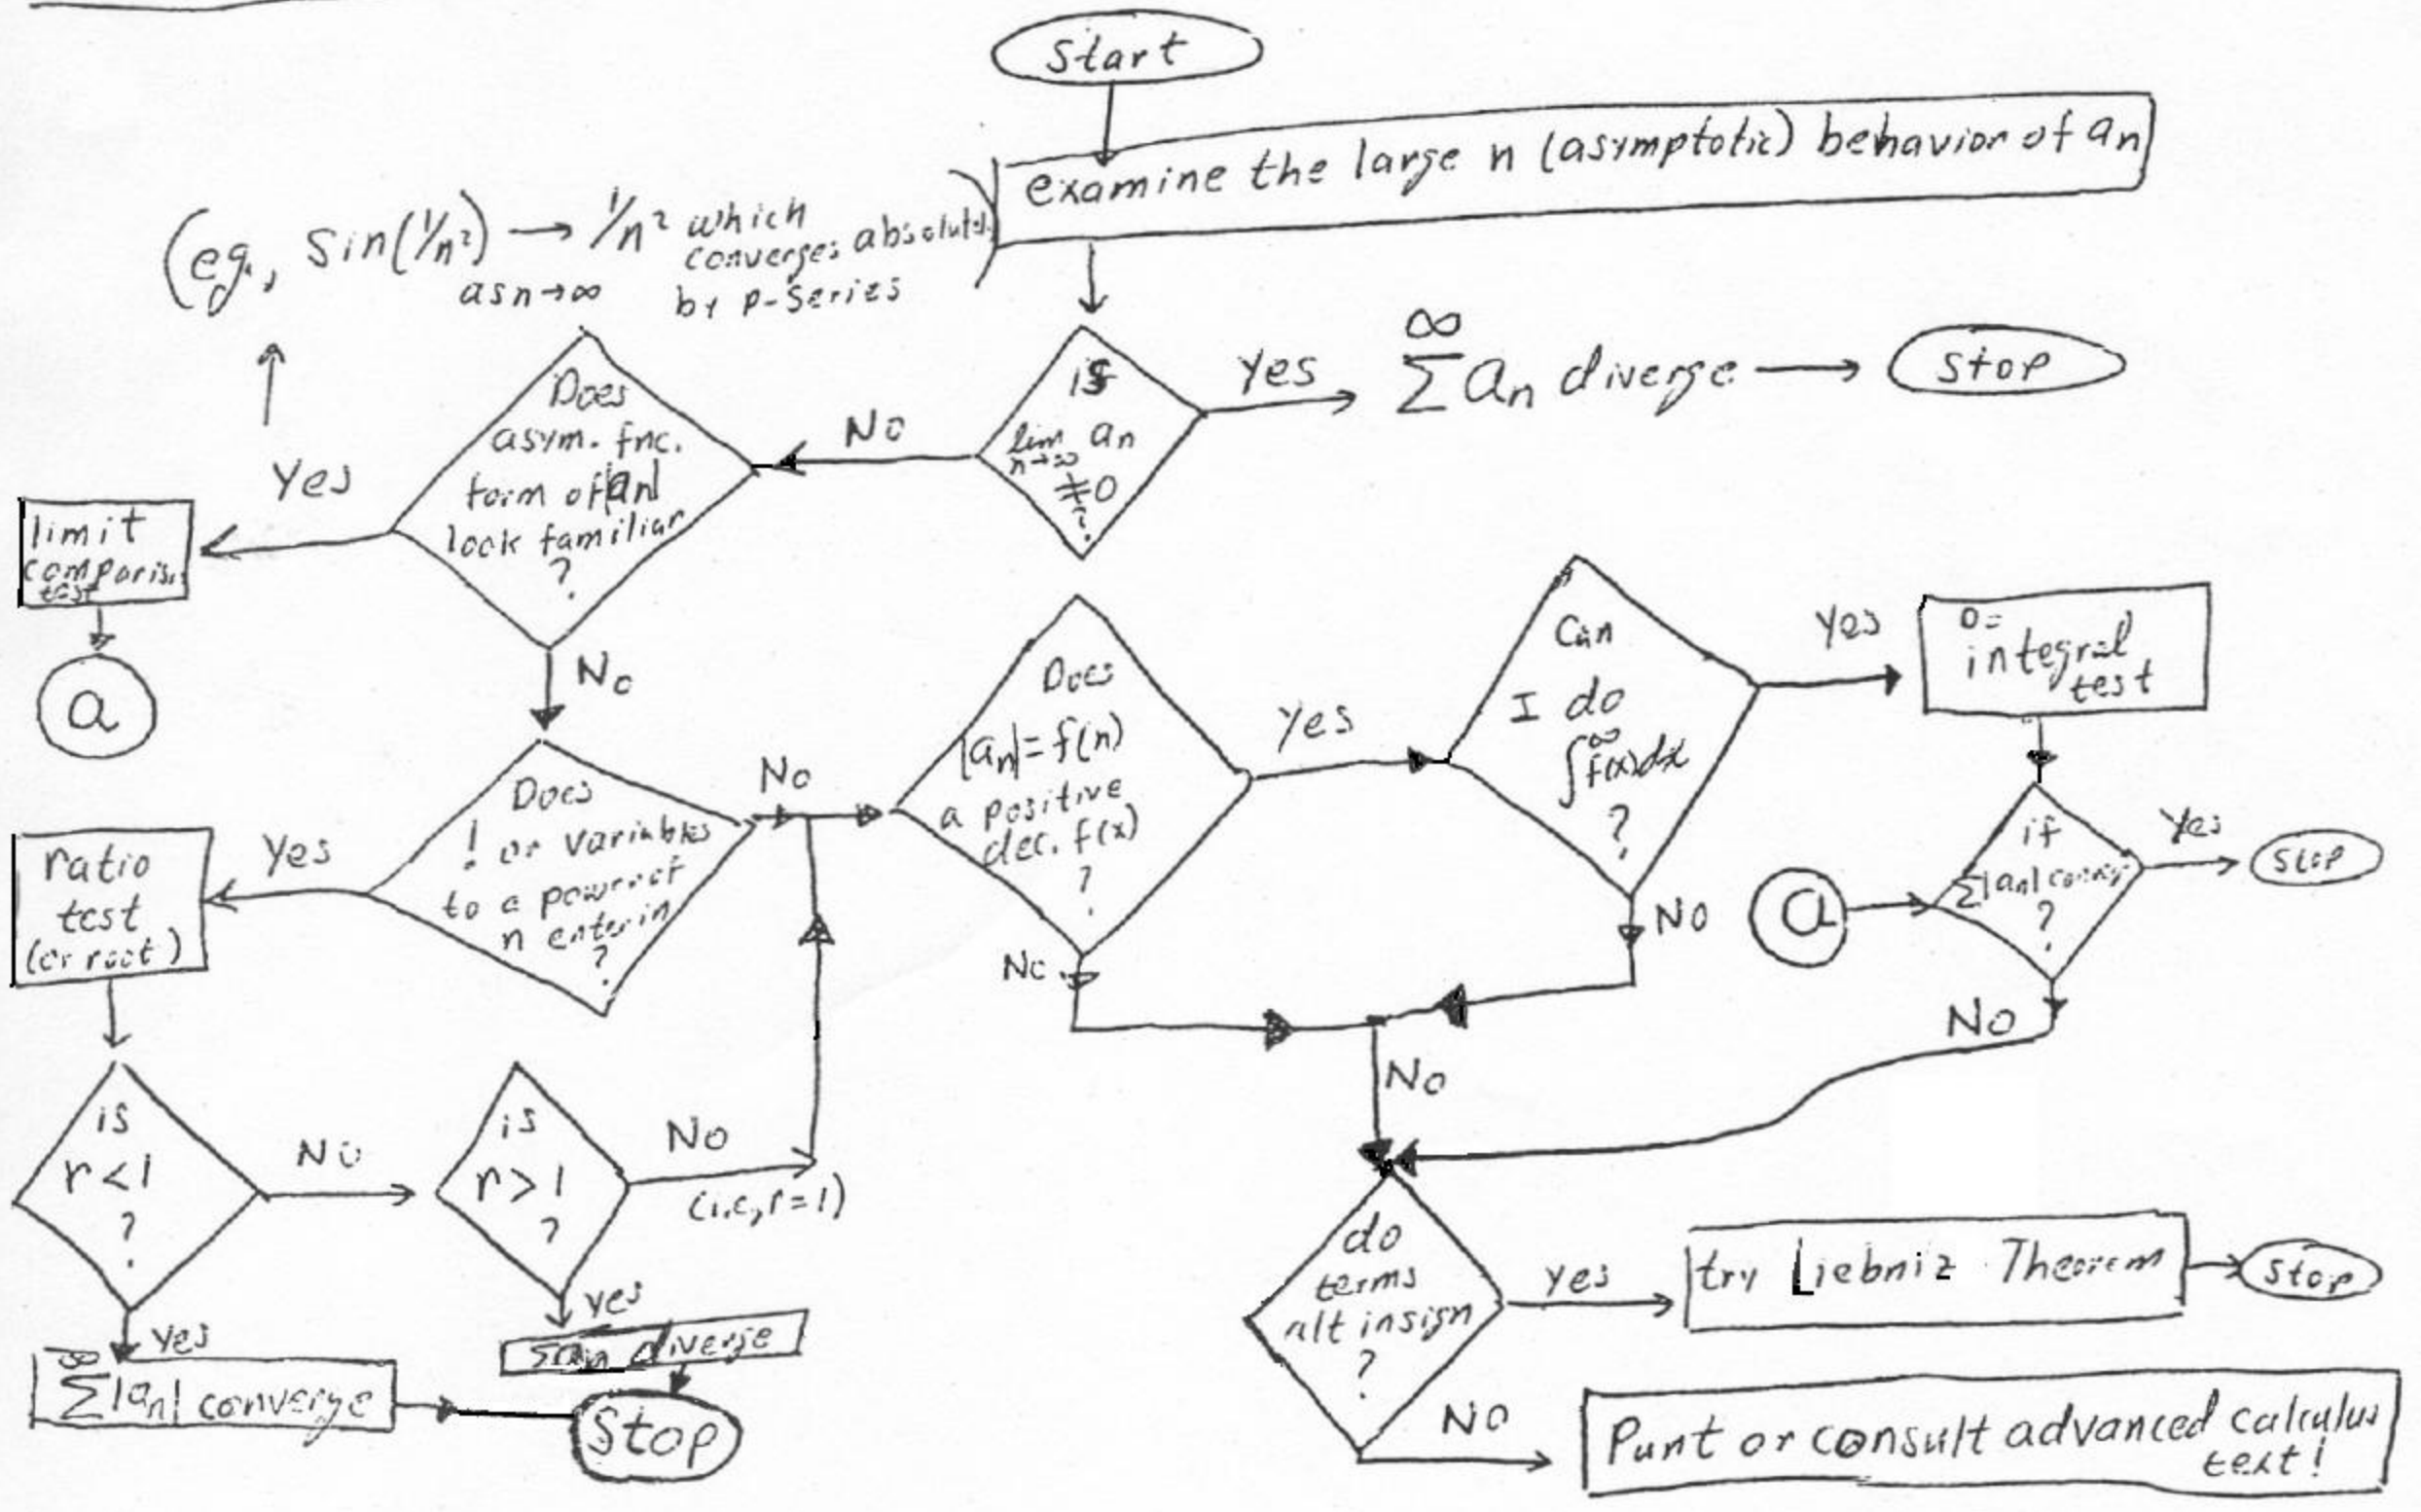 Start
examine the large n (asymptotic) behavior of an
(eg., sin(1/n²) → 1/n² which
converges absolutely
as n→∞ by p-series)
is
lim an
n→∞
≠0
?
Yes
∞
Σ an diverge
Stop
No
Does
asym. fnc.
form of |an|
look familiar
?
Yes
limit
comparison
test
a
No
Does
! or variables
to a power of
n enter in
?
Yes
ratio
test
(or root)
is
r<1
?
No
is
r>1
?
No
(i.e, r=1)
yes
∞
Σ|an| converge
yes
Σan diverge
Stop
No
Does
|an|=f(n)
a positive
dec. f(x)
?
Yes
Can
I do
∫∞ f(x)dx
?
Yes
integral
test
if
Σ|an| converge
?
Yes
Stop
a
No
No
No
No
do
terms
alt in sign
?
yes
try Liebniz Theorem
Stop
NO
Punt or consult advanced calculus
text!